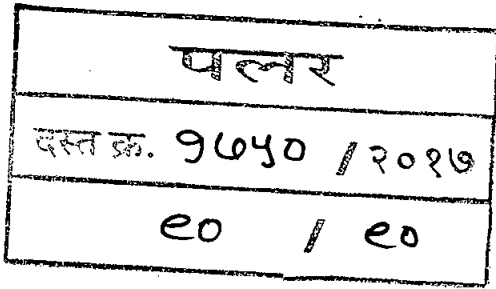 पलर
दस्त क्र. १७५० / २०१७
९० / ९०